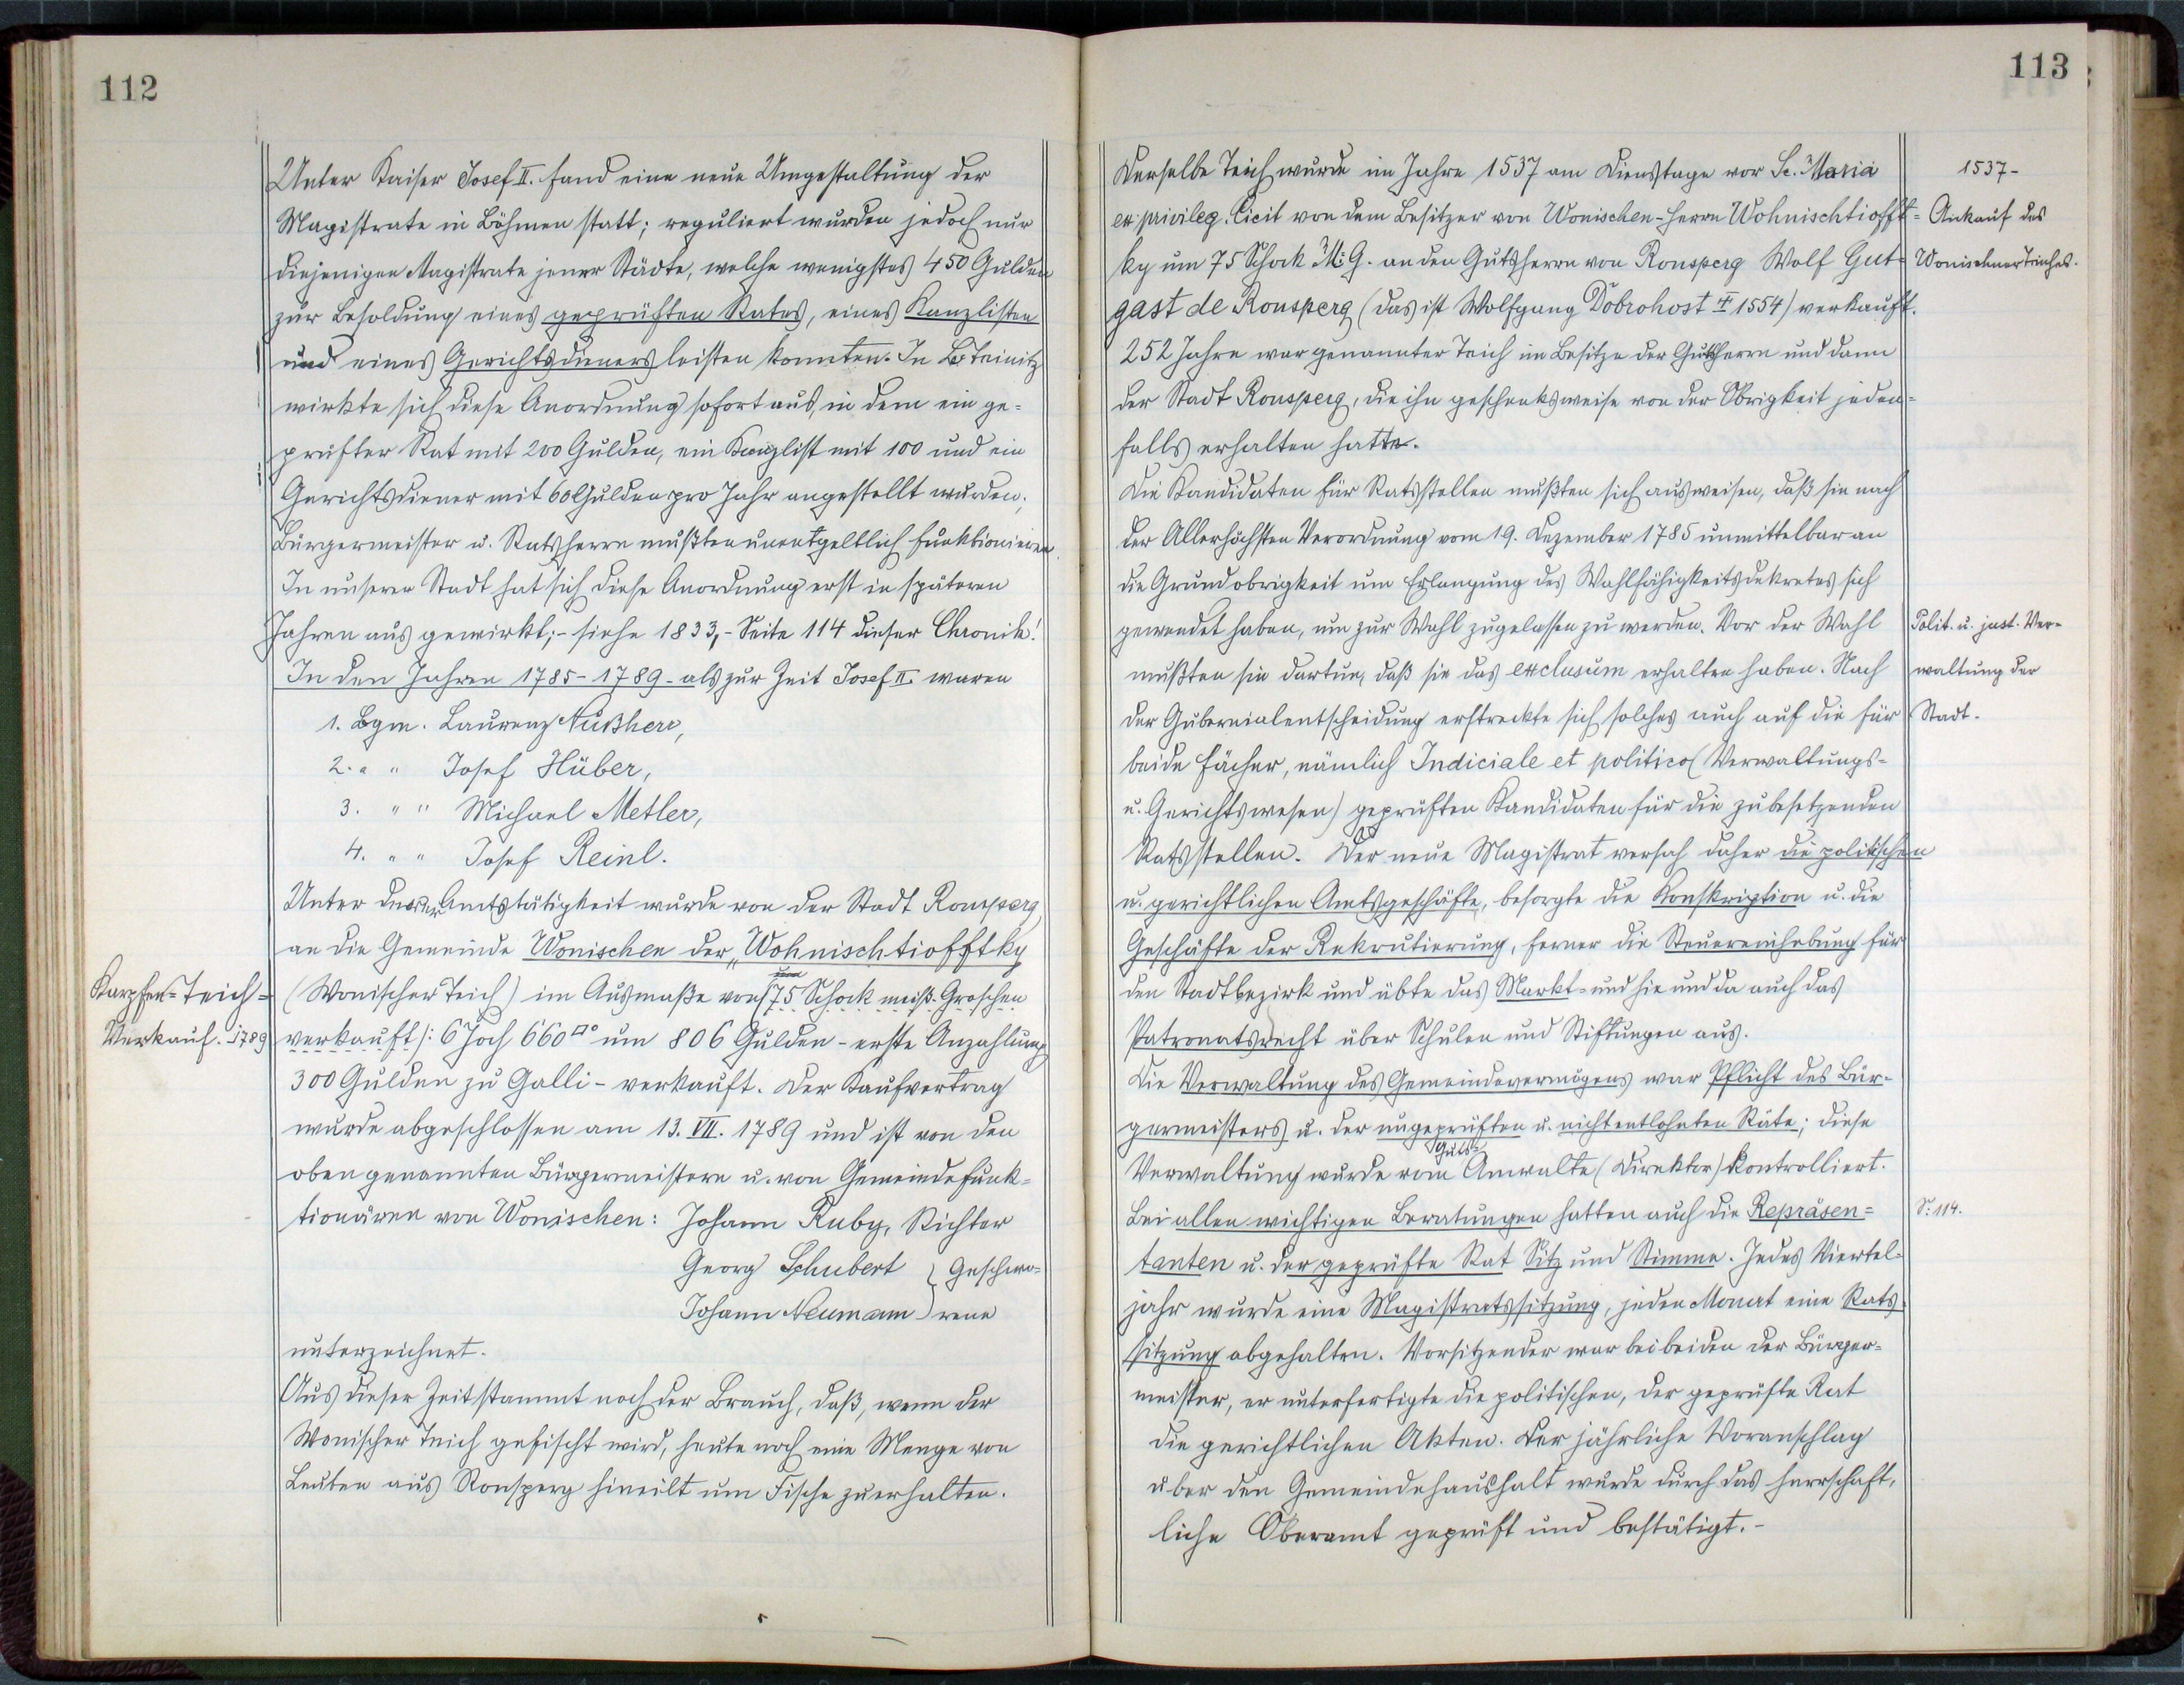 112
Unter Kaiser Josef II. fand eine neue Umgestaltung der
Magistrate in Böhmen statt; reguliert wurden jedoch nur
diejenigen Magistrate jener Städte, welche wenigstes 450 Gulden
zur Besoldung eines geprüften Rates, eines Kanzlisten
und eines Gerichtsdieners leisten konnten. In B. Teinitz
wirkte sich diese Anordnung sofort aus, in dem ein ge=
prüfter Rat mit 200 Gulden, ein Kanzlist mit 100 und ein
Gerichtsdiener mit 60 Gulden pro Jahr angestellt wurden;
Bürgermeister u. Ratsherrn mußten unentgeltlich funktionieren.
In unserer Stadt hat sich diese Anordnung erst in späteren
Jahren aus gewirkt; - siehe 1833, - Seite 114 dieser Chronik!
In den Jahren 1785 - 1789 - als zur Zeit Josef II. waren
1. Bgm. Laurenz Nußherr,
2. " " Josef Hüber,
3. " " Michael Metler,
4. " " Josef Reinl.
Unter deren Amtstätigkeit wurde von der Stadt Ronsperg
an die Gemeinde Wonischen der „Wohnischtiofftky
Karpfen=Teich=
(Wonischer Teich) im Ausmaße von 75 Schock meiß. Groschen
Verkauf. 1789
verkauft): 6 Joch 660□° um 806 Gulden - erste Anzahlung
300 Gulden zu Galli - verkauft. Der Kaufvertrag
wurde abgeschlossen am 13. VII. 1789 und ist von den
oben genannten Bürgermeistern u. von Gemeindefunk=
tionären von Wonischen: Johann Ruby, Richter
Georg Schubert } Geschwo=
Johann Neumann } rene
unterzeichnet.
Aus dieser Zeit stammt noch der Brauch, daß, wenn der
Wonischer Teich gefischt wird, heute noch eine Menge von
Leuten aus Ronsperg hineilt um Fische zu erhalten.
113
Derselbe Teich wurde im Jahre 1537 am Dienstage vor Sc. Maria
1537 -
ex privileg. licit von dem Besitzer von Wonischen - Herrn Wohnischtiofft=
Ankauf des
ky um 75 Schock M: G. an den Gutsherrn von Ronsperg Wolf Gut=
Wonischner Teiches.
gast de Ronsperg (das ist Wolfgang Dobrohost † 1554) verkauft.
252 Jahre war genannter Teich im Besitze der Gutsherrn und dann
der Stadt Ronsperg, die ihn geschenksweise von der Obrigkeit jeden=
falls erhalten hatte.
Die Kandidaten für Ratsstellen mußten sich ausweisen, daß sie nach
der Allerhöchsten Verordnung vom 19. Dezember 1785 unmittelbar an
die Grundobrigkeit um Erlangung des Wahlfähigkeitsdekretes sich
gewendet haben, um zur Wahl zugelassen zu werden. Vor der Wahl
Polit. u. just. Ver=
mußten sie dartun, daß sie das exclusum erhalten haben. Nach
waltung der
der Gubernialentscheidung erstreckte sich solches auch auf die für
Stadt.
beide Fächer, nämlich Indiciale et politico (Verwaltungs=
u. Gerichtswesen) geprüften Kandidaten für die zubesetzenden
Ratsstellen. Der neue Magistrat versah daher die politischen
u. gerichtlichen Amtsgeschäfte, besorgte die Konskription u. die
Geschäfte der Rekrutierung, ferner die Steuereinhebung für
den Stadtbezirk und übte das Markt= und hie und da auch das
Patronatsrecht über Schulen und Stiftungen aus.
Die Verwaltung des Gemeindevermögens war Pflicht des Bür=
germeisters u. der ungeprüften u. nichtentlohnten Räte; diese
Guts=
Verwaltung wurde vom Anwalte (Direktor) kontrolliert.
Bei allen wichtigen Beratungen hatten auch die Repräsen=
S. 114.
tanten u. der geprüfte Rat Sitz und Stimme. Jedes Viertel=
jahr wurde eine Magistratssitzung, jeden Monat eine Rats=
sitzung abgehalten. Vorsitzender war bei beiden der Bürger=
meister, er unterfertigte die politischen, der geprüfte Rat
die gerichtlichen Akten. Der jährliche Voranschlag
über den Gemeindehaushalt wurde durch das herrschaft,
liche Oberamt geprüft und bestätigt. -